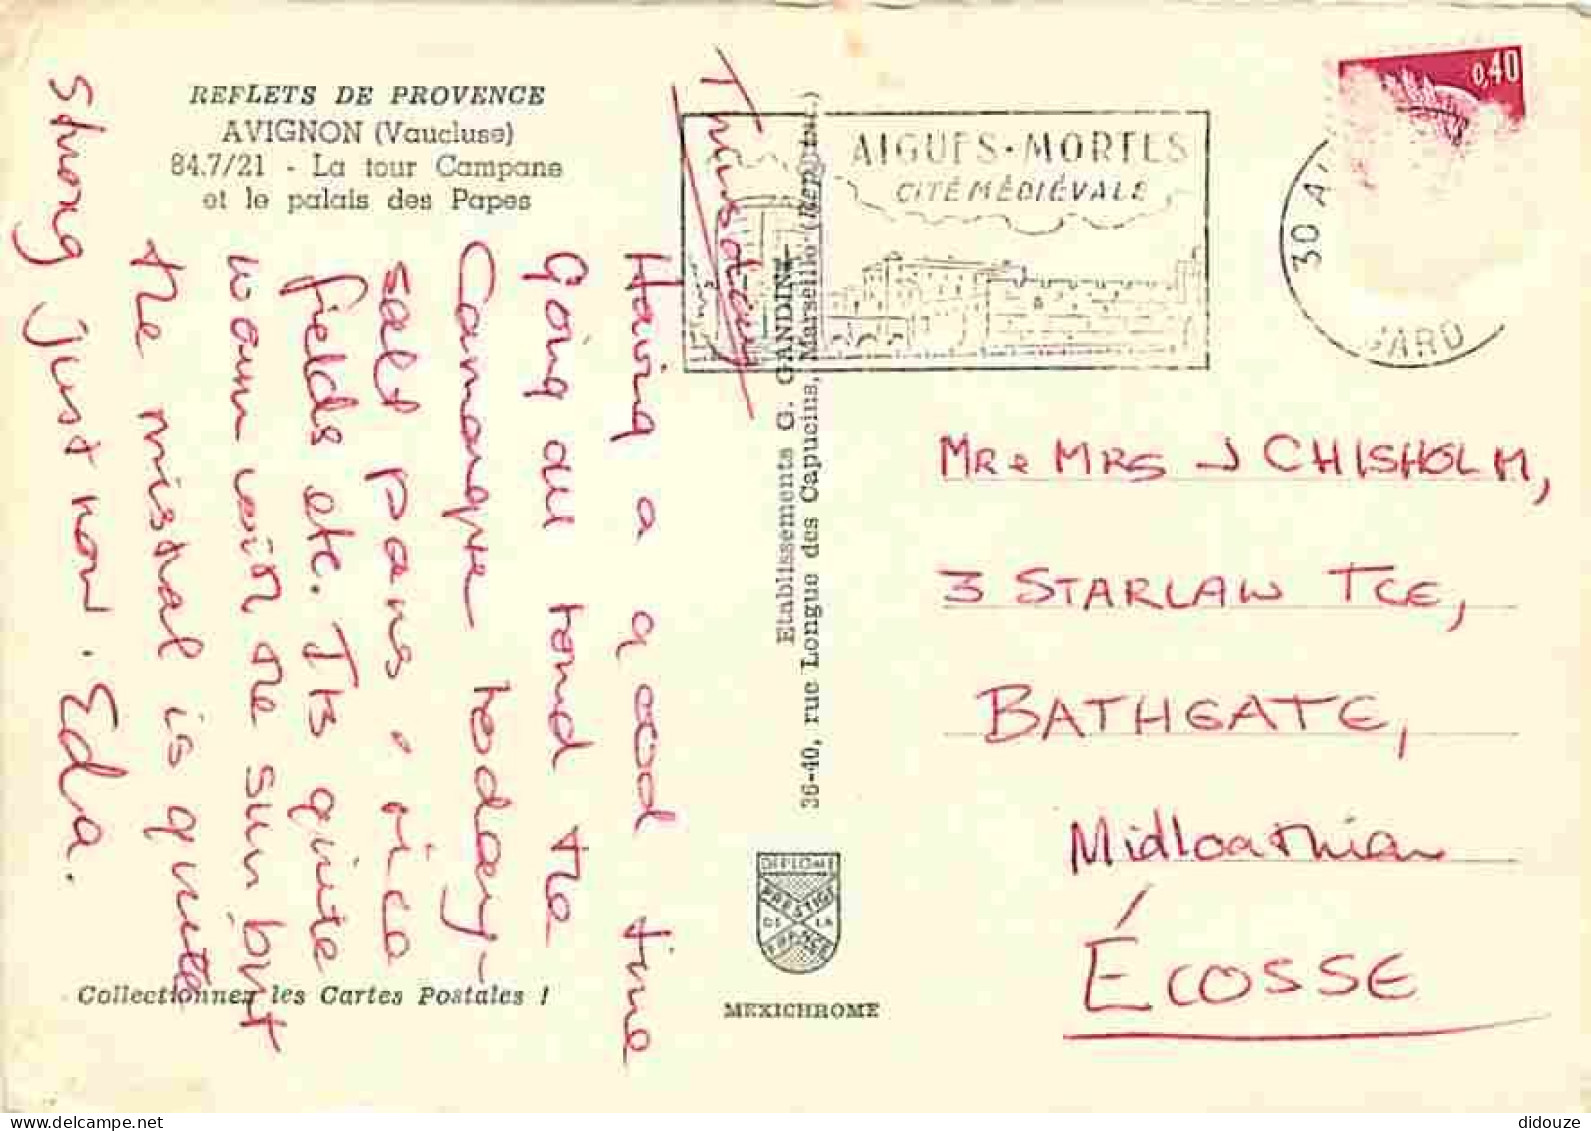 REFLETS DE PROVENCE
AVIGNON (Vaucluse)
84.7/21 - La tour Campane
et le palais des Papes
Thursday
Having a good time
Going all round the
Camargue today -
salt pans, rice
fields etc. Its quite
warm with the sun but
the mistral is quite
strong just now. Edra.
Collectionnez les Cartes Postales !
Etablissements G. GANDINI
36-40, rue Longue des Capucins, Marseille
DIPLOME
PRESTIGE
DE LA
FRANCE
MEXICHROME
AIGUES-MORTES
CITÉ MÉDIÉVALE
0,40
30
GARD
MR & MRS J CHISHOLM,
3 STARLAW TCE,
BATHGATE,
Midloathian
ÉCOSSE
delcampe.net
didouze